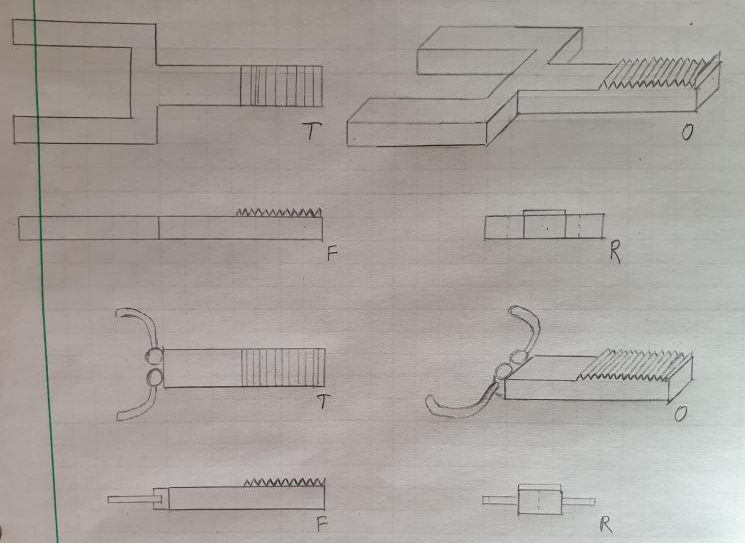 T
O
F
R
T
O
F
R